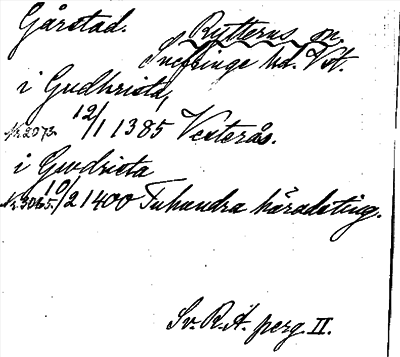 Gårstad. Rytterns sn.
Snefringe hd. Vstm.
i Gudhrista,
Nr. 2073. 12/1 1385 Vesterås.
i Gwdrista
Nr. 3065. 10/2 1400 Tuhundra häradsting.
Sv. R. A. perg II.